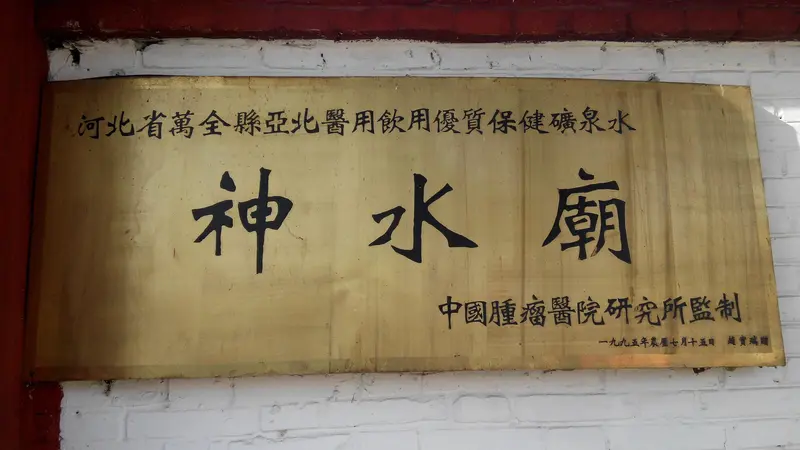 河北省萬全縣亞北醫用飲用優質保健礦泉水
神水廟
中國腫瘤醫院研究所監制
一九九五年農曆七月十五日 趙寳瑞贈